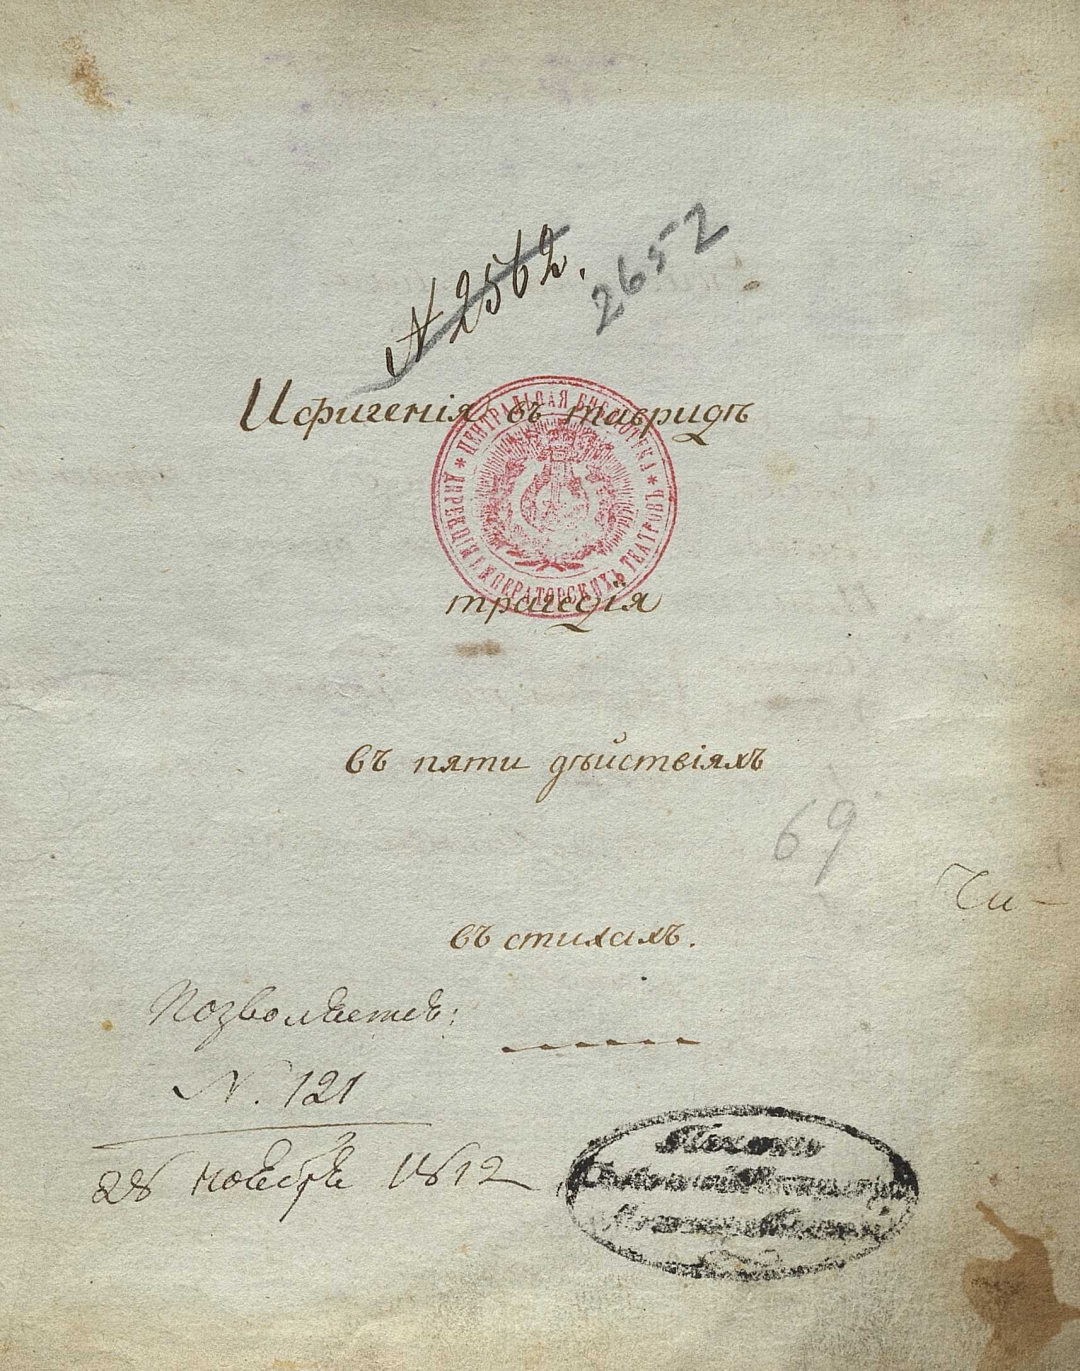 N 2562.
2652
Ифигенія въ тавридѣ
ЦЕНТРАЛЬНАЯ БИБЛІОТЕКА * ДИРЕКЦІИ ИМПЕРАТОРСКИХЪ ТЕАТРОВЪ *
трагедія
въ пяти дѣйствіяхъ
69
Чи-
въ стихахъ.
Позволяется:
N. 121
28 ноября 1812